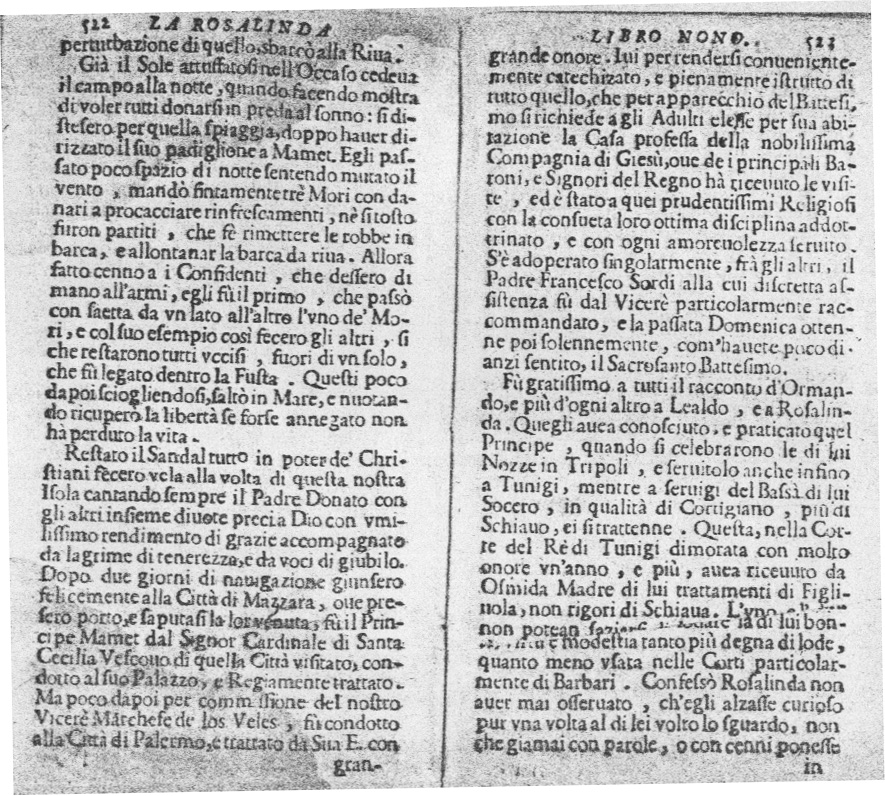 522 LA ROSALINDA
perturbazione di quello, sbarcò alla Riua.
Già il Sole attuffatosi nell'Occaso cedeua
il campo alla notte, quando facendo mostra
di voler tutti donarsi in preda al sonno: si di-
stesero per quella spiaggia, doppo hauer di-
rizzato il suo padiglione a Mamet. Egli pas-
sato poco spazio di notte sentendo mutato il
vento, mandò fintamente trè Mori con da-
nari a procacciare rinfrescamenti, nè sì tosto
furon partiti, che fè rimettere le robbe in
barca, e allontanar la barca da riua. Allora
fatto cenno a i Confidenti, che dessero di
mano all'armi, egli fù il primo, che passò
con saetta da vn lato all'altro l'vno de' Mo-
ri, e col suo esempio così fecero gli altri, sì
che restarono tutti vccisi, fuori di vn solo,
che fù legato dentro la Fusta. Questi poco
dapoi sciogliendosi, saltò in Mare, e nuotan-
do ricuperò la libertà se forse annegato non
hà perduto la vita.
Restato il Sandal tutto in poter de' Chri-
stiani fecero vela alla volta di questa nostra
Isola cantando sempre il Padre Donato con
gli altri insieme diuote preci a Dio con vmi-
lissimo rendimento di grazie accompagnato
da lagrime di tenerezza, e da voci di giubilo.
Dopo due giorni di nauigazione giunsero
felicemente alla Città di Mazzara, oue pre-
sero porto, e saputasi la lor venuta, fù il Prin-
cipe Mamet dal Signor Cardinale di Santa
Cecilia Vescouo di quella Città visitato, con-
dotto al suo Palazzo, e Regiamente trattato.
Ma poco dapoi per commissione del nostro
Vicerè Marchese de los Veles, fù condotto
alla Città di Palermo, e trattato da Sua E. con
gran-
LIBRO NONO. 523
grande onore. Iui per rendersi conueniente-
mente catechizato, e pienamente istrutto di
tutto quello, che per apparecchio del Battesi-
mo si richiede a gli Adulti elesse per sua abi-
tazione la Casa professa della nobilissima
Compagnia di Giesù, oue de i principali Ba-
roni, e Signori del Regno hà riceuuto le visi-
te, ed è stato a quei prudentissimi Religiosi
con la consueta loro ottima disciplina addot-
trinato, e con ogni amoreuolezza seruito.
S'è adoperato singolarmente, frà gli altri, il
Padre Francesco Sordi alla cui discretta as-
sistenza fù dal Vicerè particolarmente rac-
commandato, e la passata Domenica otten-
ne poi solennemente, com'hauete poco di-
anzi sentito, il Sacrosanto Battesimo.
Fù gratissimo a tutti il racconto d'Orman-
do, e più d'ogni altro a Lealdo, e a Rosalin-
da. Quegli auea conosciuto, e praticato quel
Principe, quando si celebrarono le di lui
Nozze in Tripoli, e seruitolo anche infino
a Tunigi, mentre a seruigi del Bassà di lui
Socero, in qualità di Cortigiano, più di
Schiauo, ei si trattenne. Questa, nella Cor-
te del Rè di Tunigi dimorata con molto
onore vn'anno, e più, auea riceuuto da
Osmida Madre di lui trattamenti di Figli-
uola, non rigori di Schiaua. L'vno
non potean la di lui bon-
e modestia tanto più degna di lode,
quanto meno vsata nelle Corti particolar-
mente di Barbari. Confessò Rosalinda non
auer mai osseruato, ch'egli alzasse curioso
pur vna volta al di lei volto lo sguardo, non
che giamai con parole, o con cenni ponesse
in